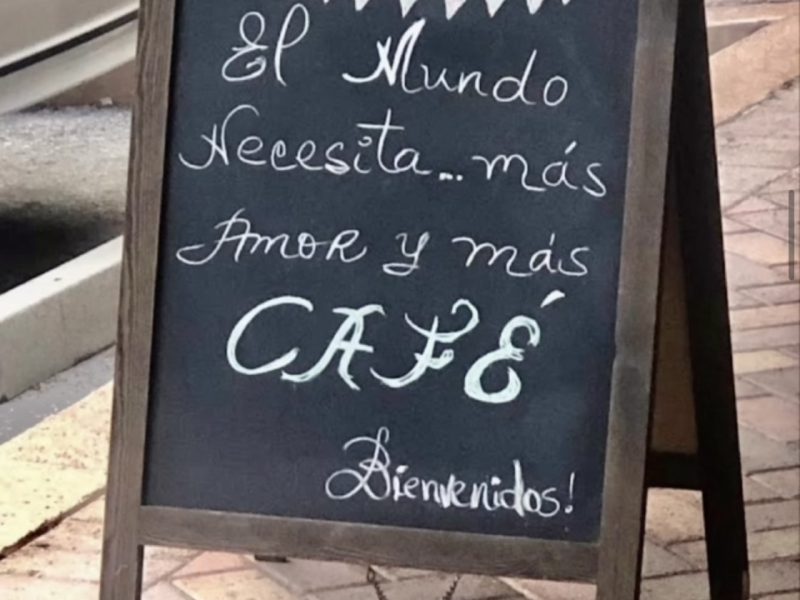 El Mundo
Necesita... más
Amor y más
CAFÉ
Bienvenidos!